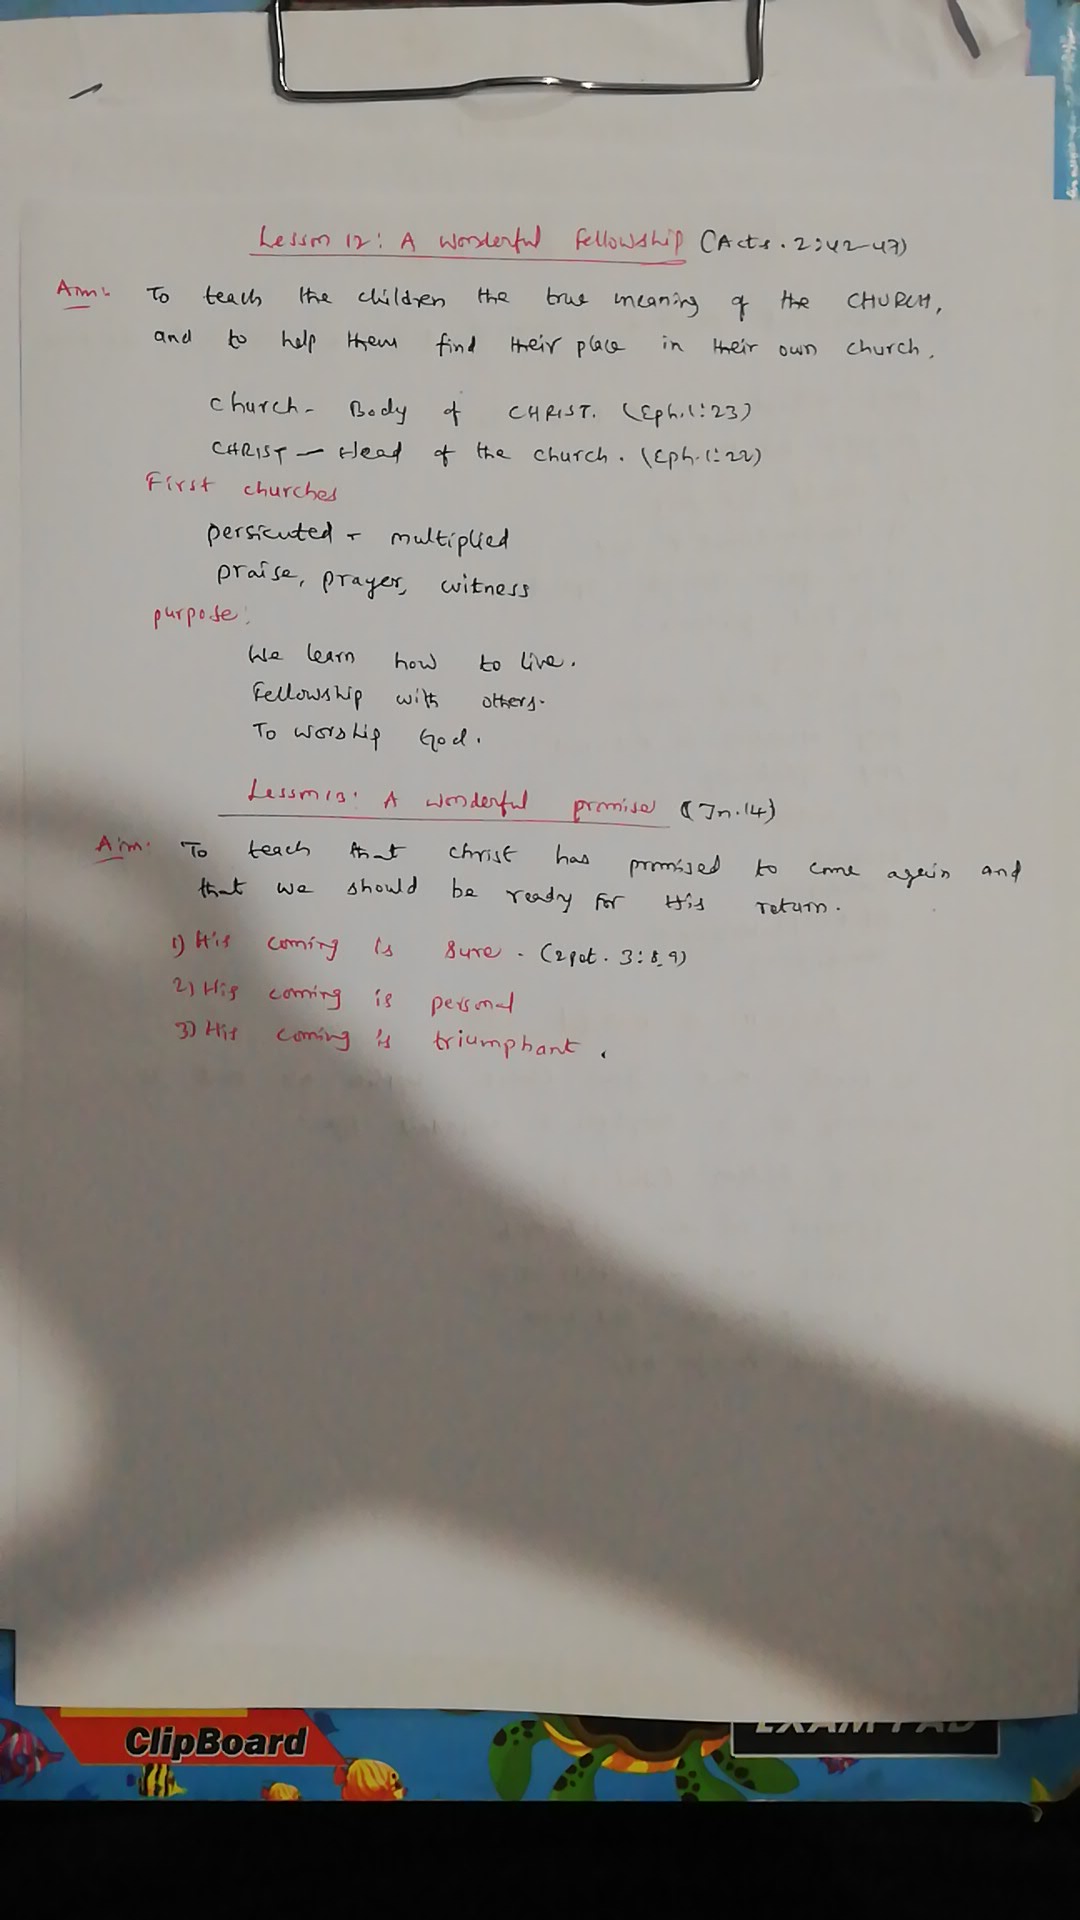 Lesson 12: A wonderful fellowship (Acts. 2:42-47)
Aim: To teach the children the true meaning of the CHURCH,
and to help them find their place in their own church.
church - Body of CHRIST. (Eph.1:23)
CHRIST - Head of the church. (Eph.1:22)
First churches
persicuted - multiplied
praise, prayer, witness
purpose:
We learn how to live.
Fellowship with others.
To worship God.
Lesson 13: A wonderful promise (Jn.14)
Aim: To teach that christ has promised to come again and
that we should be ready for His return.
1) His coming is sure. (2 pet. 3:8,9)
2) His coming is personal
3) His coming is triumphant.
ClipBoard
EXAM PAD